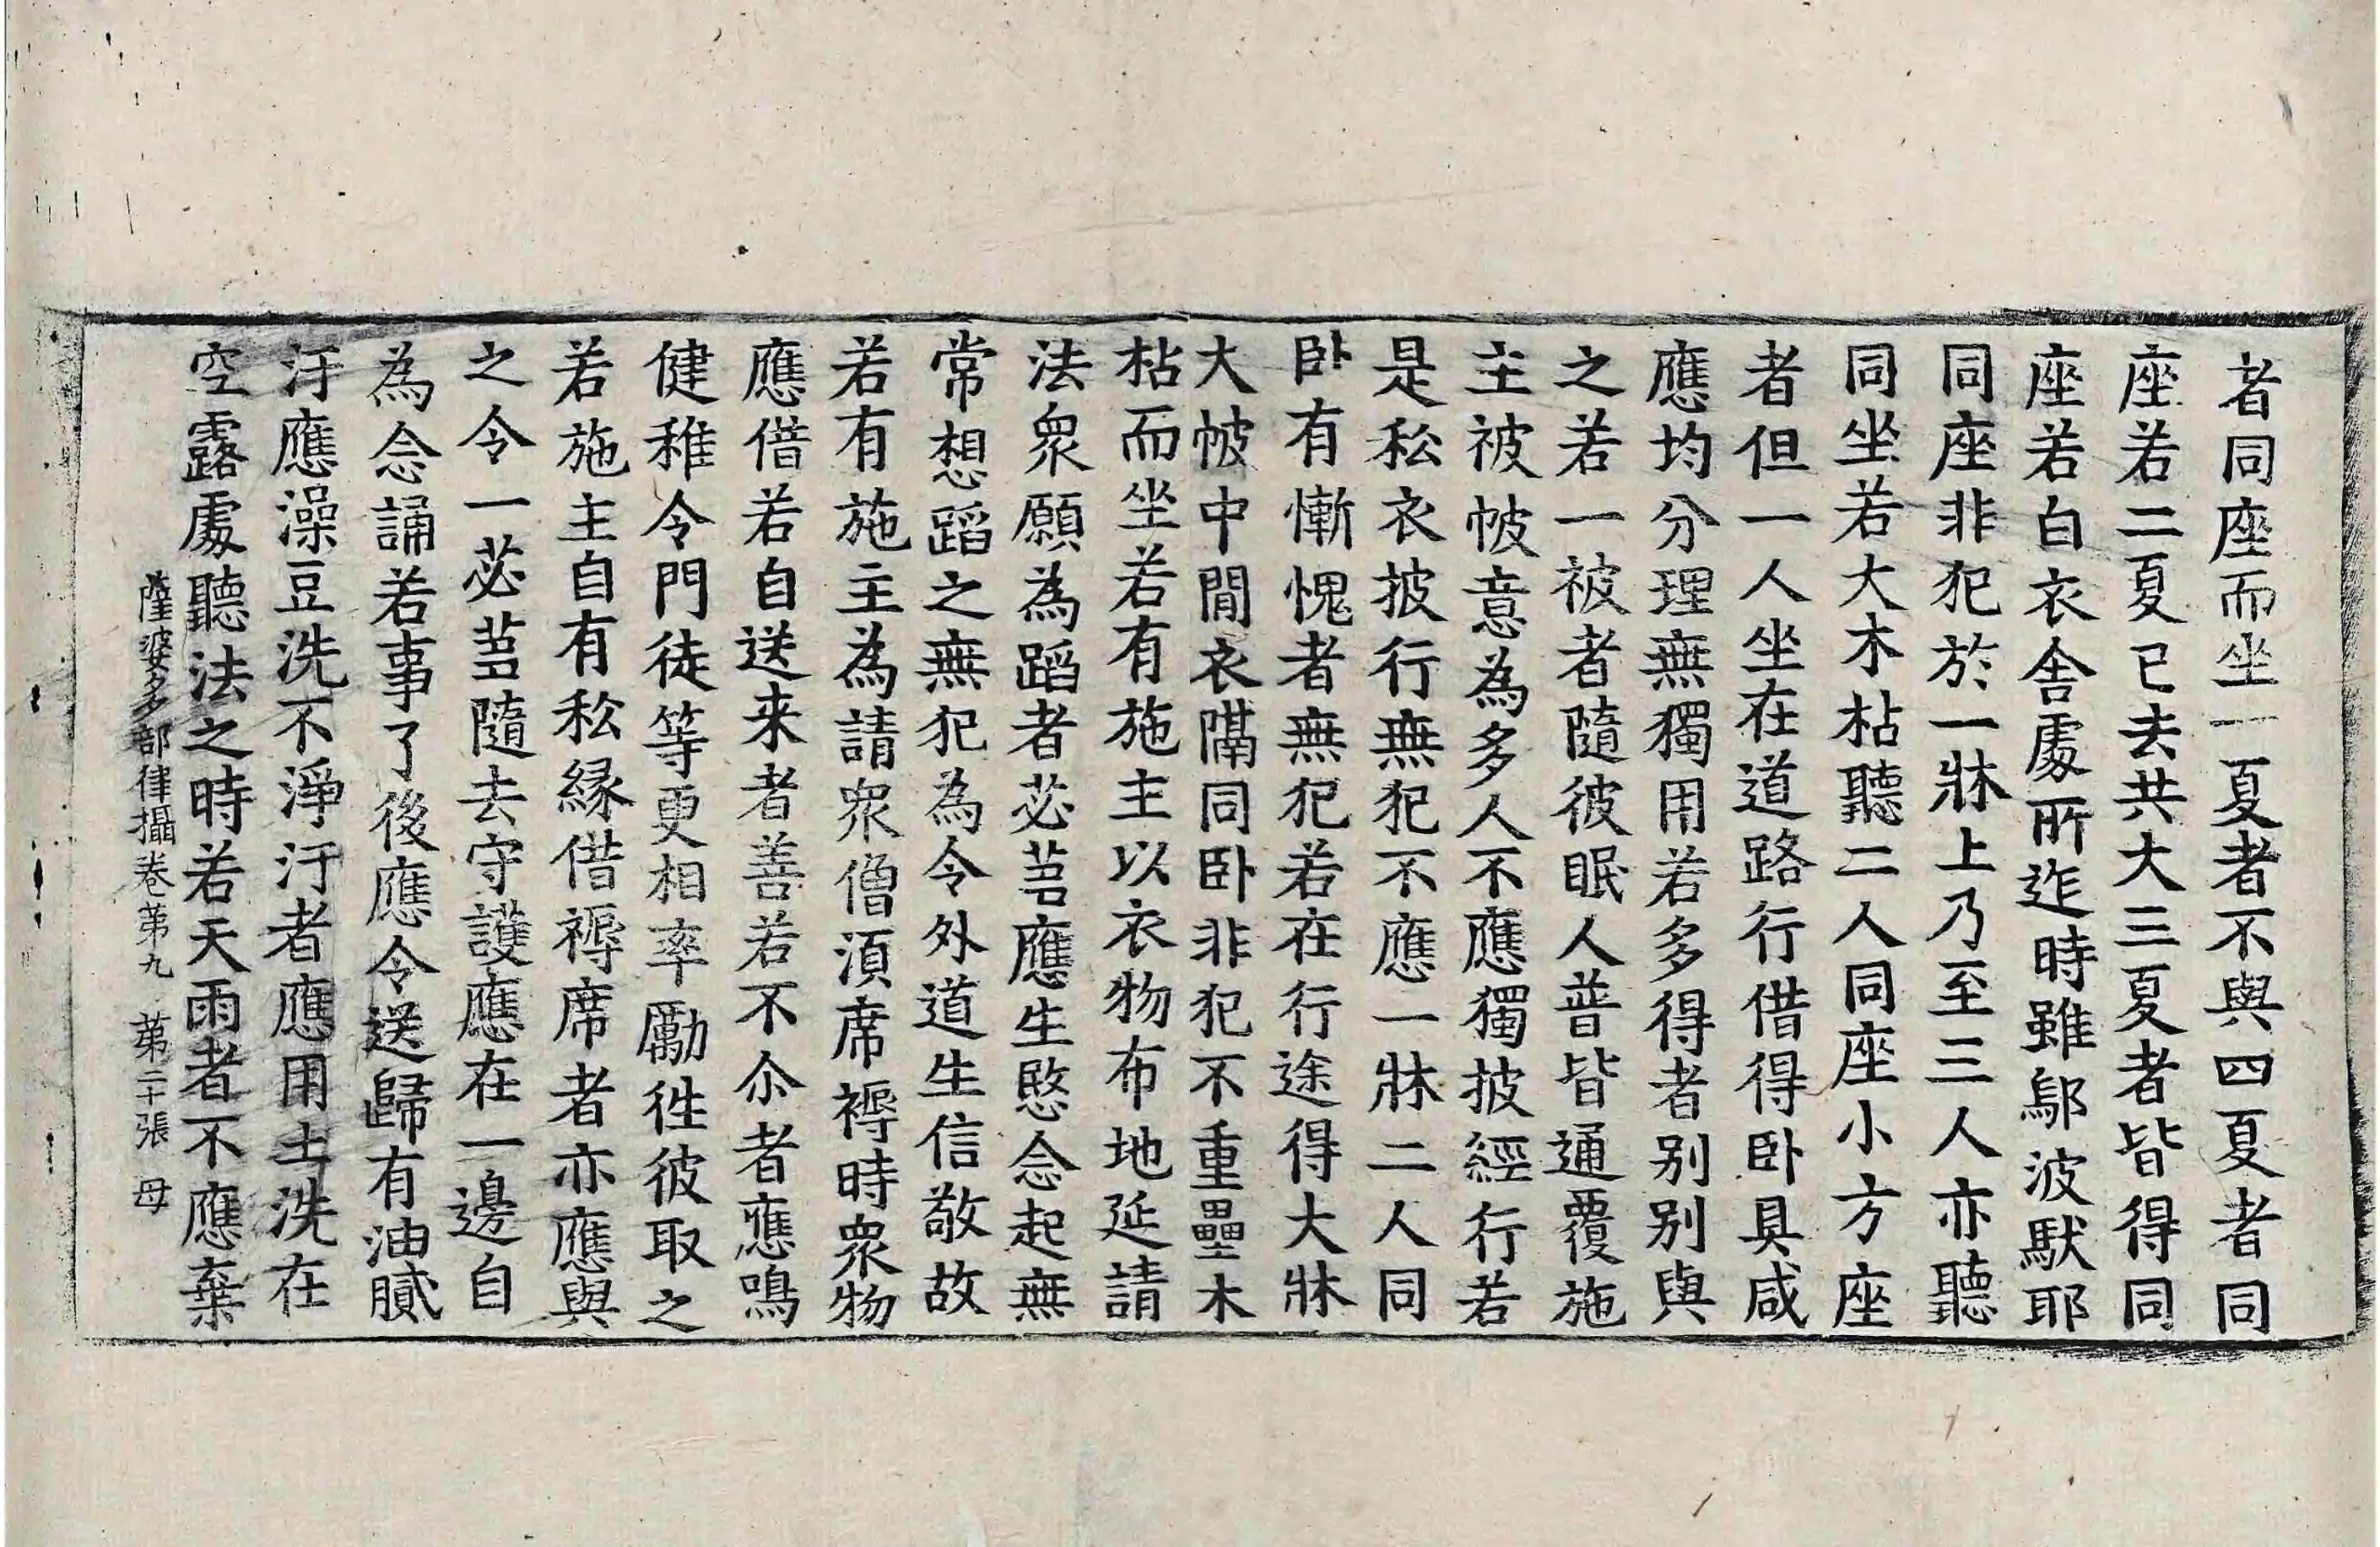 者同座而坐一夏者不與四夏者同
座若二夏已去共大三夏者皆得同
座若白衣舍處所迮時雖鄔波馱耶
同座非犯於一牀上乃至三人亦聽
同坐若大木枮聽二人同座小方座
者但一人坐在道路行借得卧具咸
應均分理無獨用若多得者别别與
之若一被者隨彼眠人普皆通覆施
主被帔意為多人不應獨披經行若
是私衣披行無犯不應一牀二人同
卧有慚愧者無犯若在行途得大牀
大帔中閒衣隔同卧非犯不重壘木
枮而坐若有施主以衣物布地延請
法衆願為蹈者苾芻應生愍念起無
常想蹈之無犯為令外道生信敬故
若有施主為請衆僧湏席褥時衆物
應借若自送来者善若不尒者應鳴
健稚令門徒等更相率勵徃彼取之
若施主自有私緣借褥席者亦應與
之令一苾芻隨去守護應在一邊自
為念誦若事了後應令送歸有油膩
汙應澡豆洗不淨汙者應用土洗在
空露處聽法之時若天雨者不應棄
薩婆多部律攝卷苐九 苐二十張 母